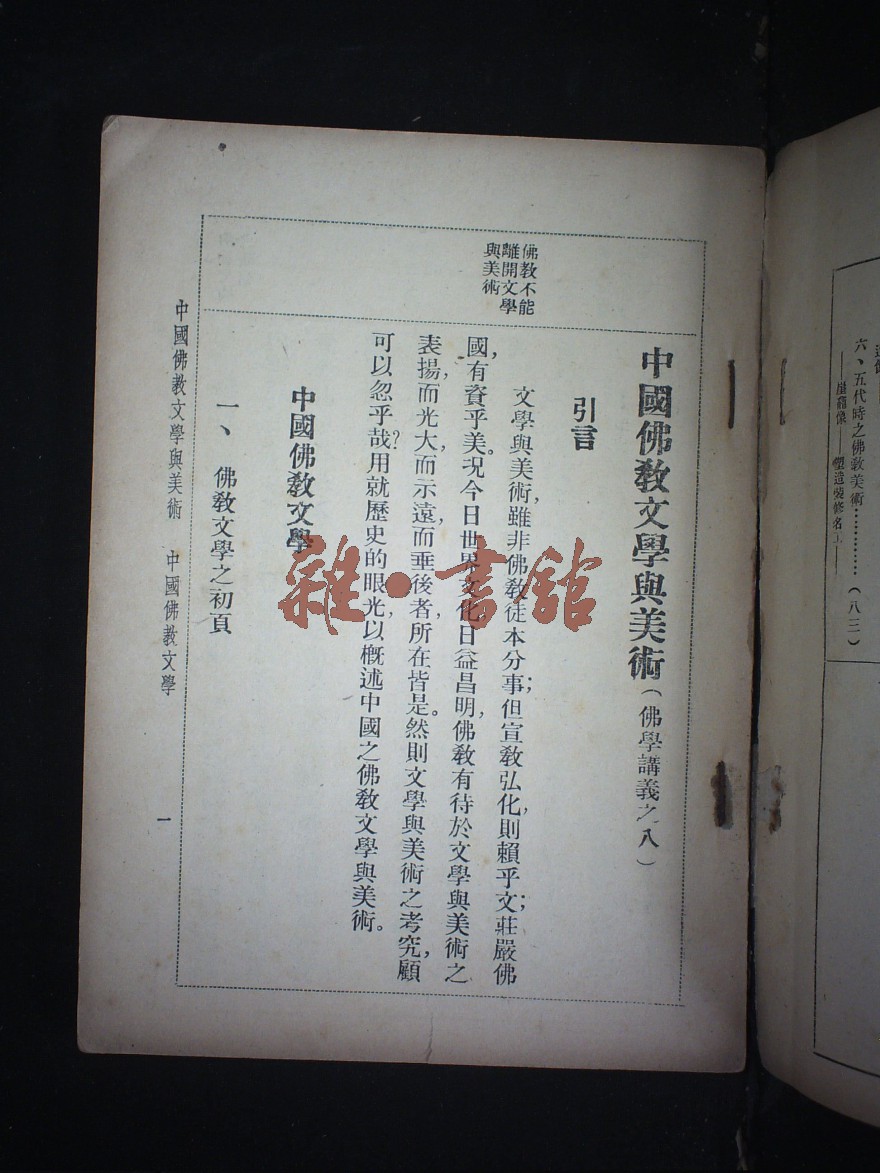 中國佛教文學與美術（佛學講義之八）
引言
佛教不能
離開文學
與美術
文學與美術，雖非佛教徒本分事；但宣教弘化，則賴乎文；莊嚴佛
國，有資乎美。況今日世界文化日益昌明，佛教有待於文學與美術之
表揚，而光大，而示遠，而垂後者，所在皆是。然則文學與美術之考究，顧
可以忽乎哉？用就歷史的眼光，以概述中國之佛教文學與美術。
中國佛教文學
一、佛教文學之初頁
中國佛教文學與美術　中國佛教文學
一
六、五代時之佛教美術…………（八三）
雜·書館